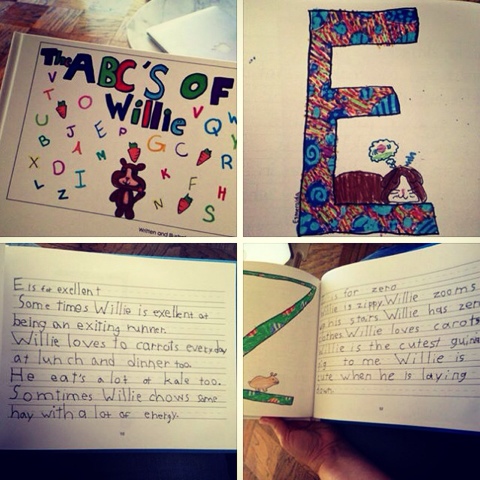 The ABC'S OF
Willie
V
T O V Q W
U J E P G C
B R
X D A N K F
L Z I H
N S
Written and
E
E is for exellent
Some times Willie is exellent at
being an exiting runner.
Willie loves to carrots everyday
at lunch and dinner too.
He eat's a lot of kale too.
Somtimes Willie chows some
hay with a lot of energy.
Z
is for zero
Willie is zippy. Willie zooms
his stars Willie has zero
Willie loves carots
Willie is the cutest guinea
to me. Willie is
cute when he is laying
down.